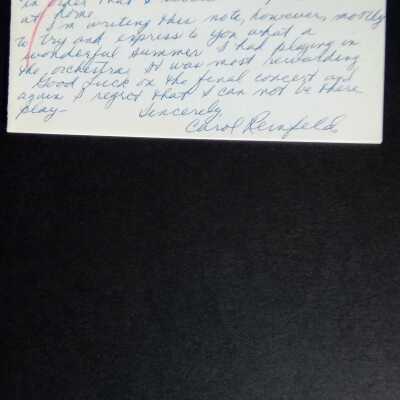 in order that I
at home.
I'm writing this note, however, mostly
to try and express to you what a
wonderful summer I had playing in
the orchestra. It was most rewarding
Good luck on the final concert and
again I regret that I can not be there
play-
Sincerely,
Carol Reinfelds